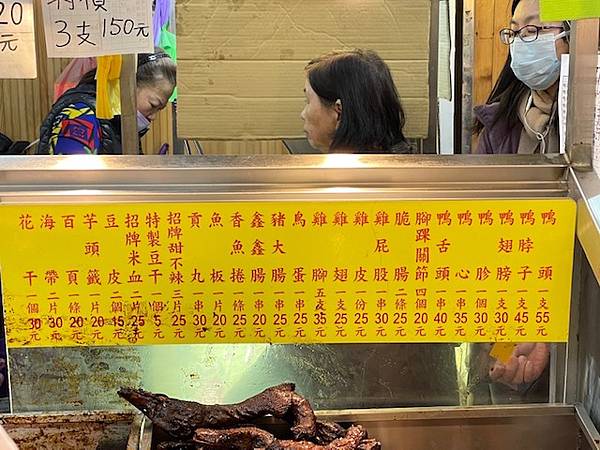 20
元
特價
3支150元
鴨頭一支55元
鴨脖子一支45元
鴨翅膀一支30元
鴨胗一個30元
鴨心一串35元
鴨舌頭一串40元
腳踝關節四個20元
脆腸一條25元
雞屁股一串30元
雞皮一份25元
雞翅一支25元
雞腳五支35元
鳥蛋一串25元
豬大腸一串25元
鑫鑫腸一串25元
香魚捲一條25元
魚板一片20元
貢丸一串30元
招牌甜不辣三片25元
特製豆干一個5元
招牌米血25元
豆皮一個15元
芋頭籤一片20元
百頁一片20元
海帶一串30元
花干一個30元